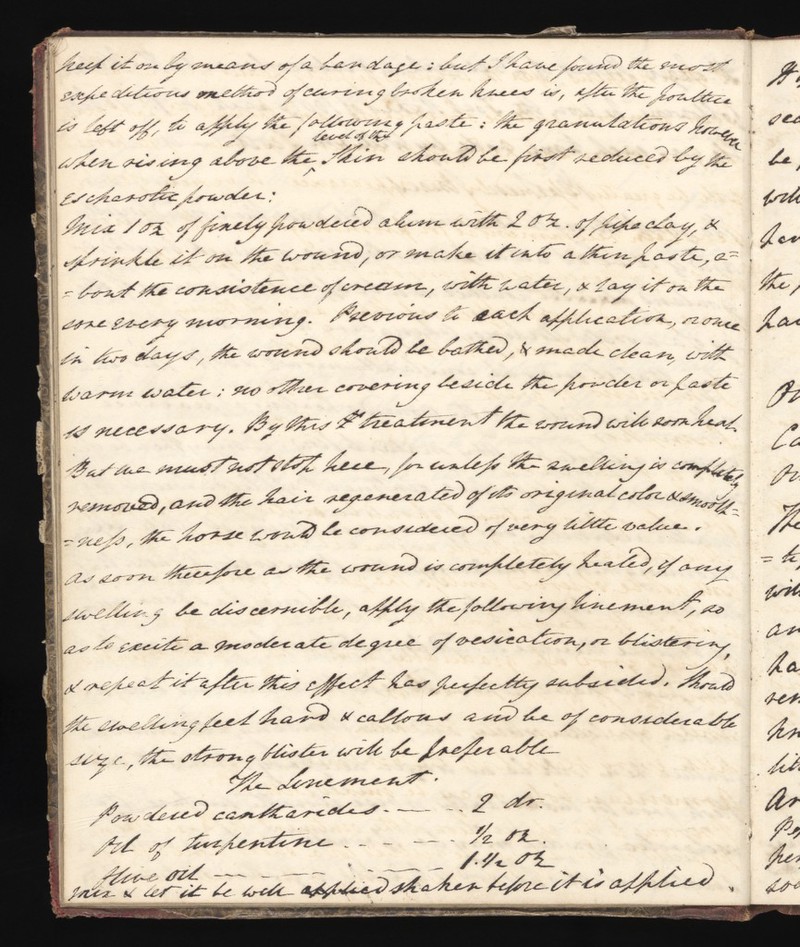 keep it on by means of a bandage: but I have found the most
expeditious method of curing broken knees is, after the poultice
is left off, to apply the following paste: the granulations however
level of the
when rising above the ^ skin should be first reduced by the
escharotic powder:
Mix 1 oz of finely powdered alum with 2 oz. of pipe clay, &
sprinkle it on the wound, or make it into a thin paste, a=
=bout the consistence of cream, with water, & lay it on the
sore every morning. Previous to each application, or once
in two days, the wound should be bathed, & made clean, with
warm water: no other covering beside the powder or paste
is necessary. By this treatment the wound will soon heal.
But we must not stop here, for unless the swelling is completely
removed, and the hair regenerated of its original color & smooth=
=ness, the horse would be considered of very little value.
As soon therefore as the wound is completely healed, if any
swelling be discernible, apply the following linement, so
as to excite a moderate degree of vesication, or blistering,
& repeat it after this effect has perfectly subsided. Should
the swelling feel hard & callous and be of considerable
size, the strong blister will be preferable
The Linement.
Powdered cantharides - - - 2 dr.
Oil of turpentine - - - - 1/2 oz.
Olive oil - - - - - - 1.1/2 oz
mix & let it be well applied shaken before it is applied.